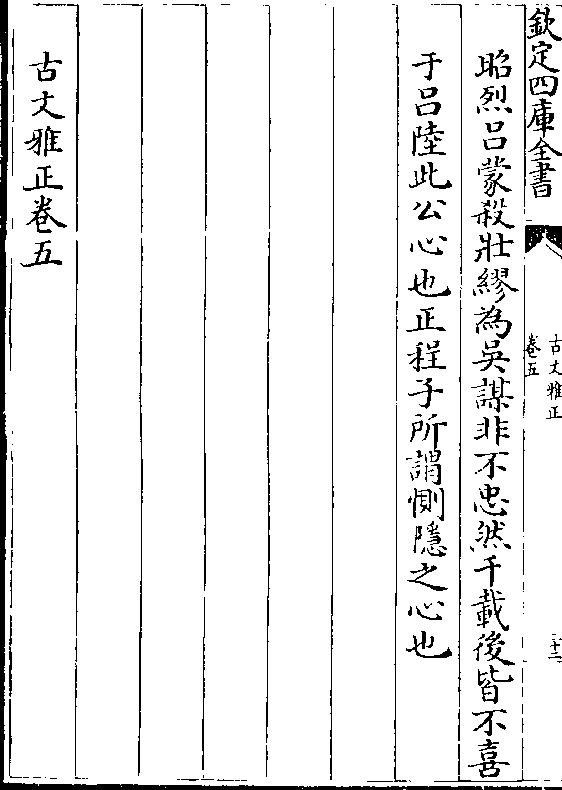 欽定四庫全書
古文雅正
卷五
三十二
昭烈吕蒙殺壯繆為吳謀非不忠然千載後皆不喜
于吕陸此公心也正程子所謂惻隱之心也
古文雅正卷五